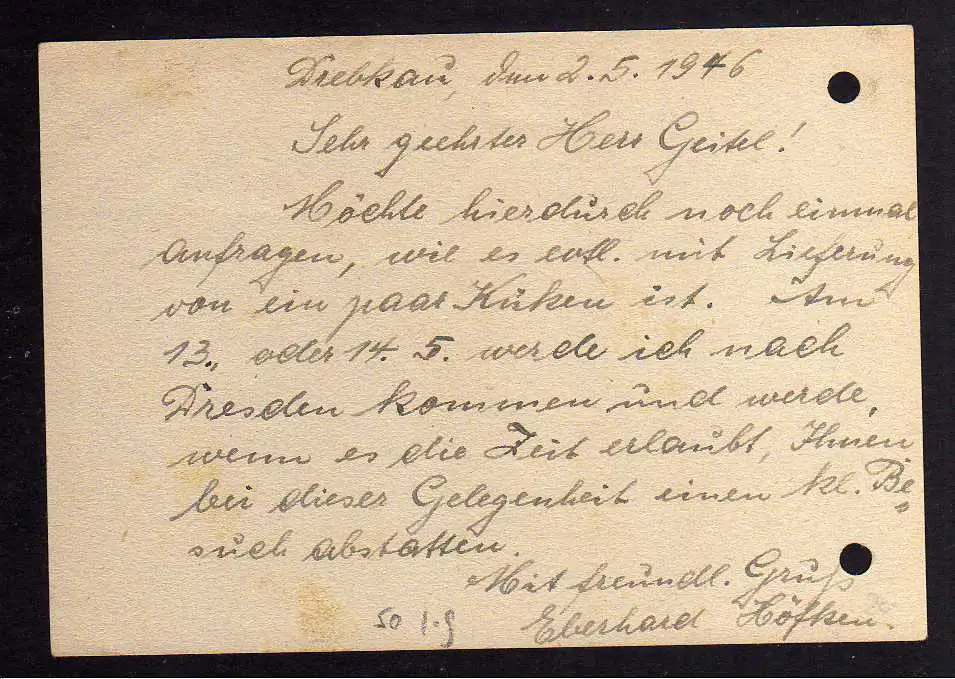 Drebkau, den 2. 5. 1946
Sehr geehrter Herr Geitel!
Möchte hierdurch noch einmal
anfragen, wie es evtl. mit Lieferung
von ein paar Küken ist. Am
13., oder 14. 5. werde ich nach
Dresden kommen und werde,
wenn es die Zeit erlaubt, Ihnen
bei dieser Gelegenheit einen kl. Be-
such abstatten.
Mit freundl. Gruß
Eberhard Höfken.
50